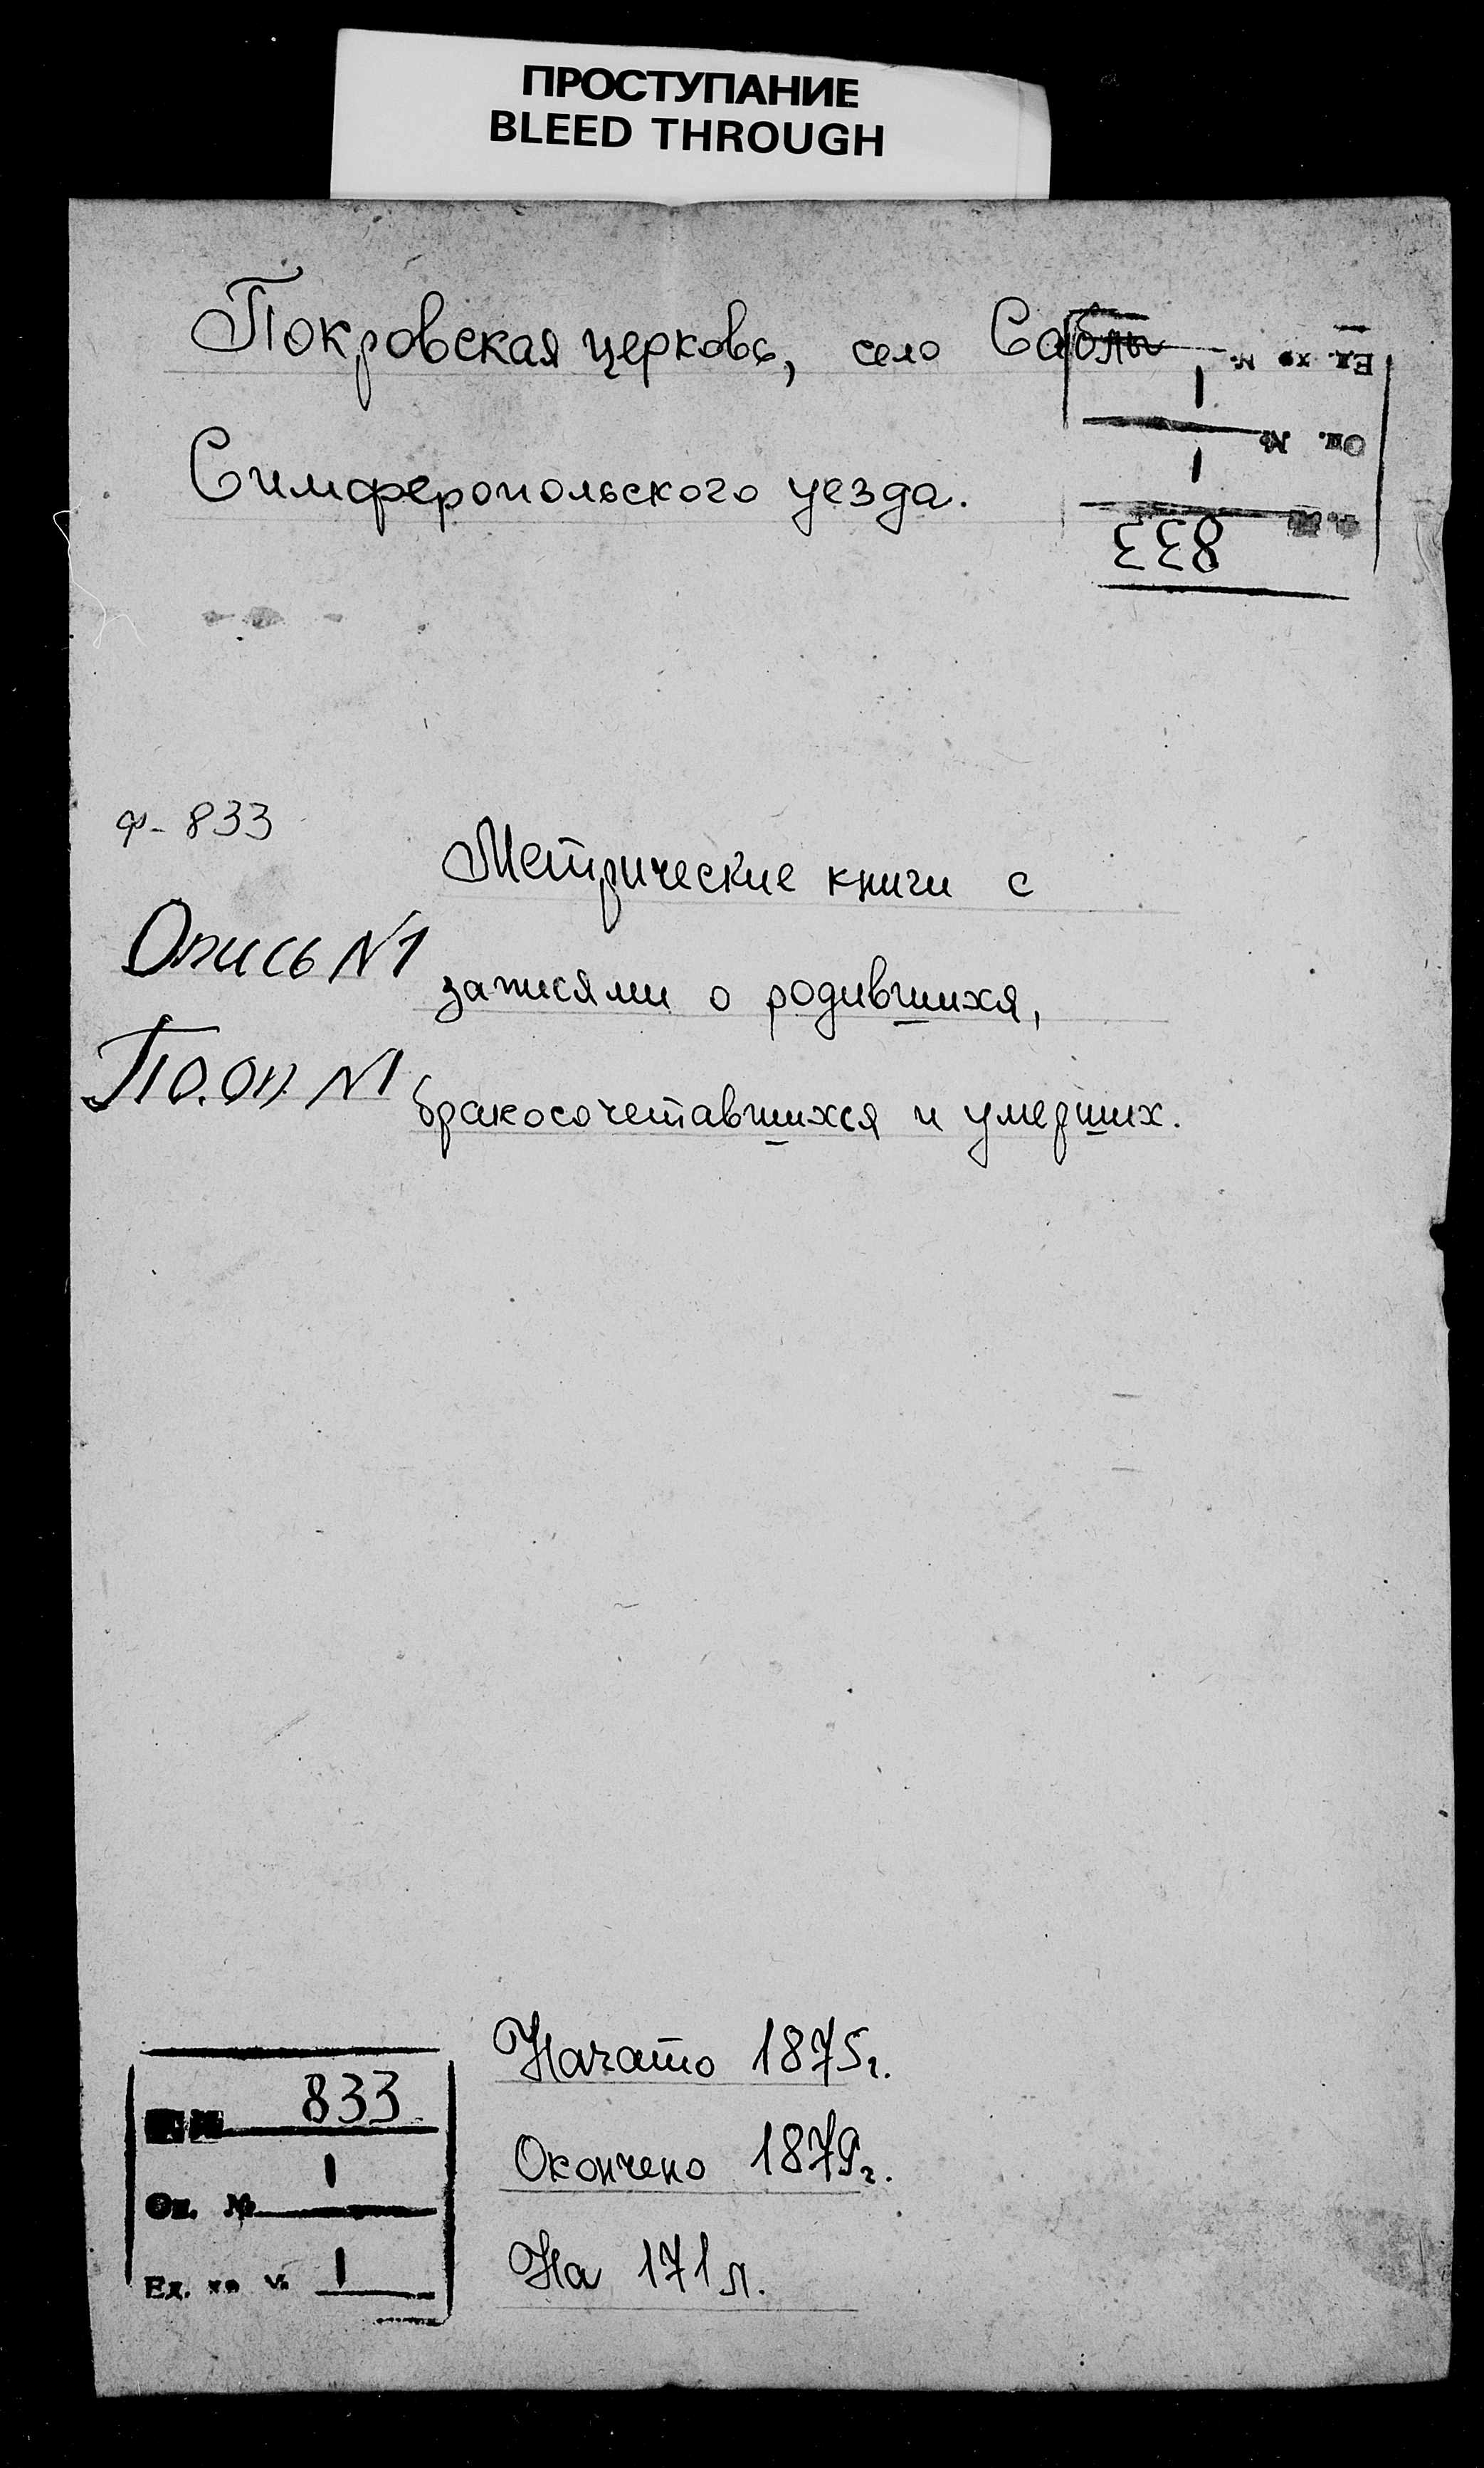 ПРОСТУПАНИЕ
BLEED THROUGH
Покровская церковь, село Саблы
Симферопольского уезда.
Ед. хр №. 1
Оп. № 1
833
ф- 833
Метрические книги с
Опись №1
записями о родившихся,
По.оп. №1
бракосочетавшихся и умерших.
Начато 1875г.
Окончено 1879г.
На 171л.
833
Оп. № 1
Ед. хр № 1